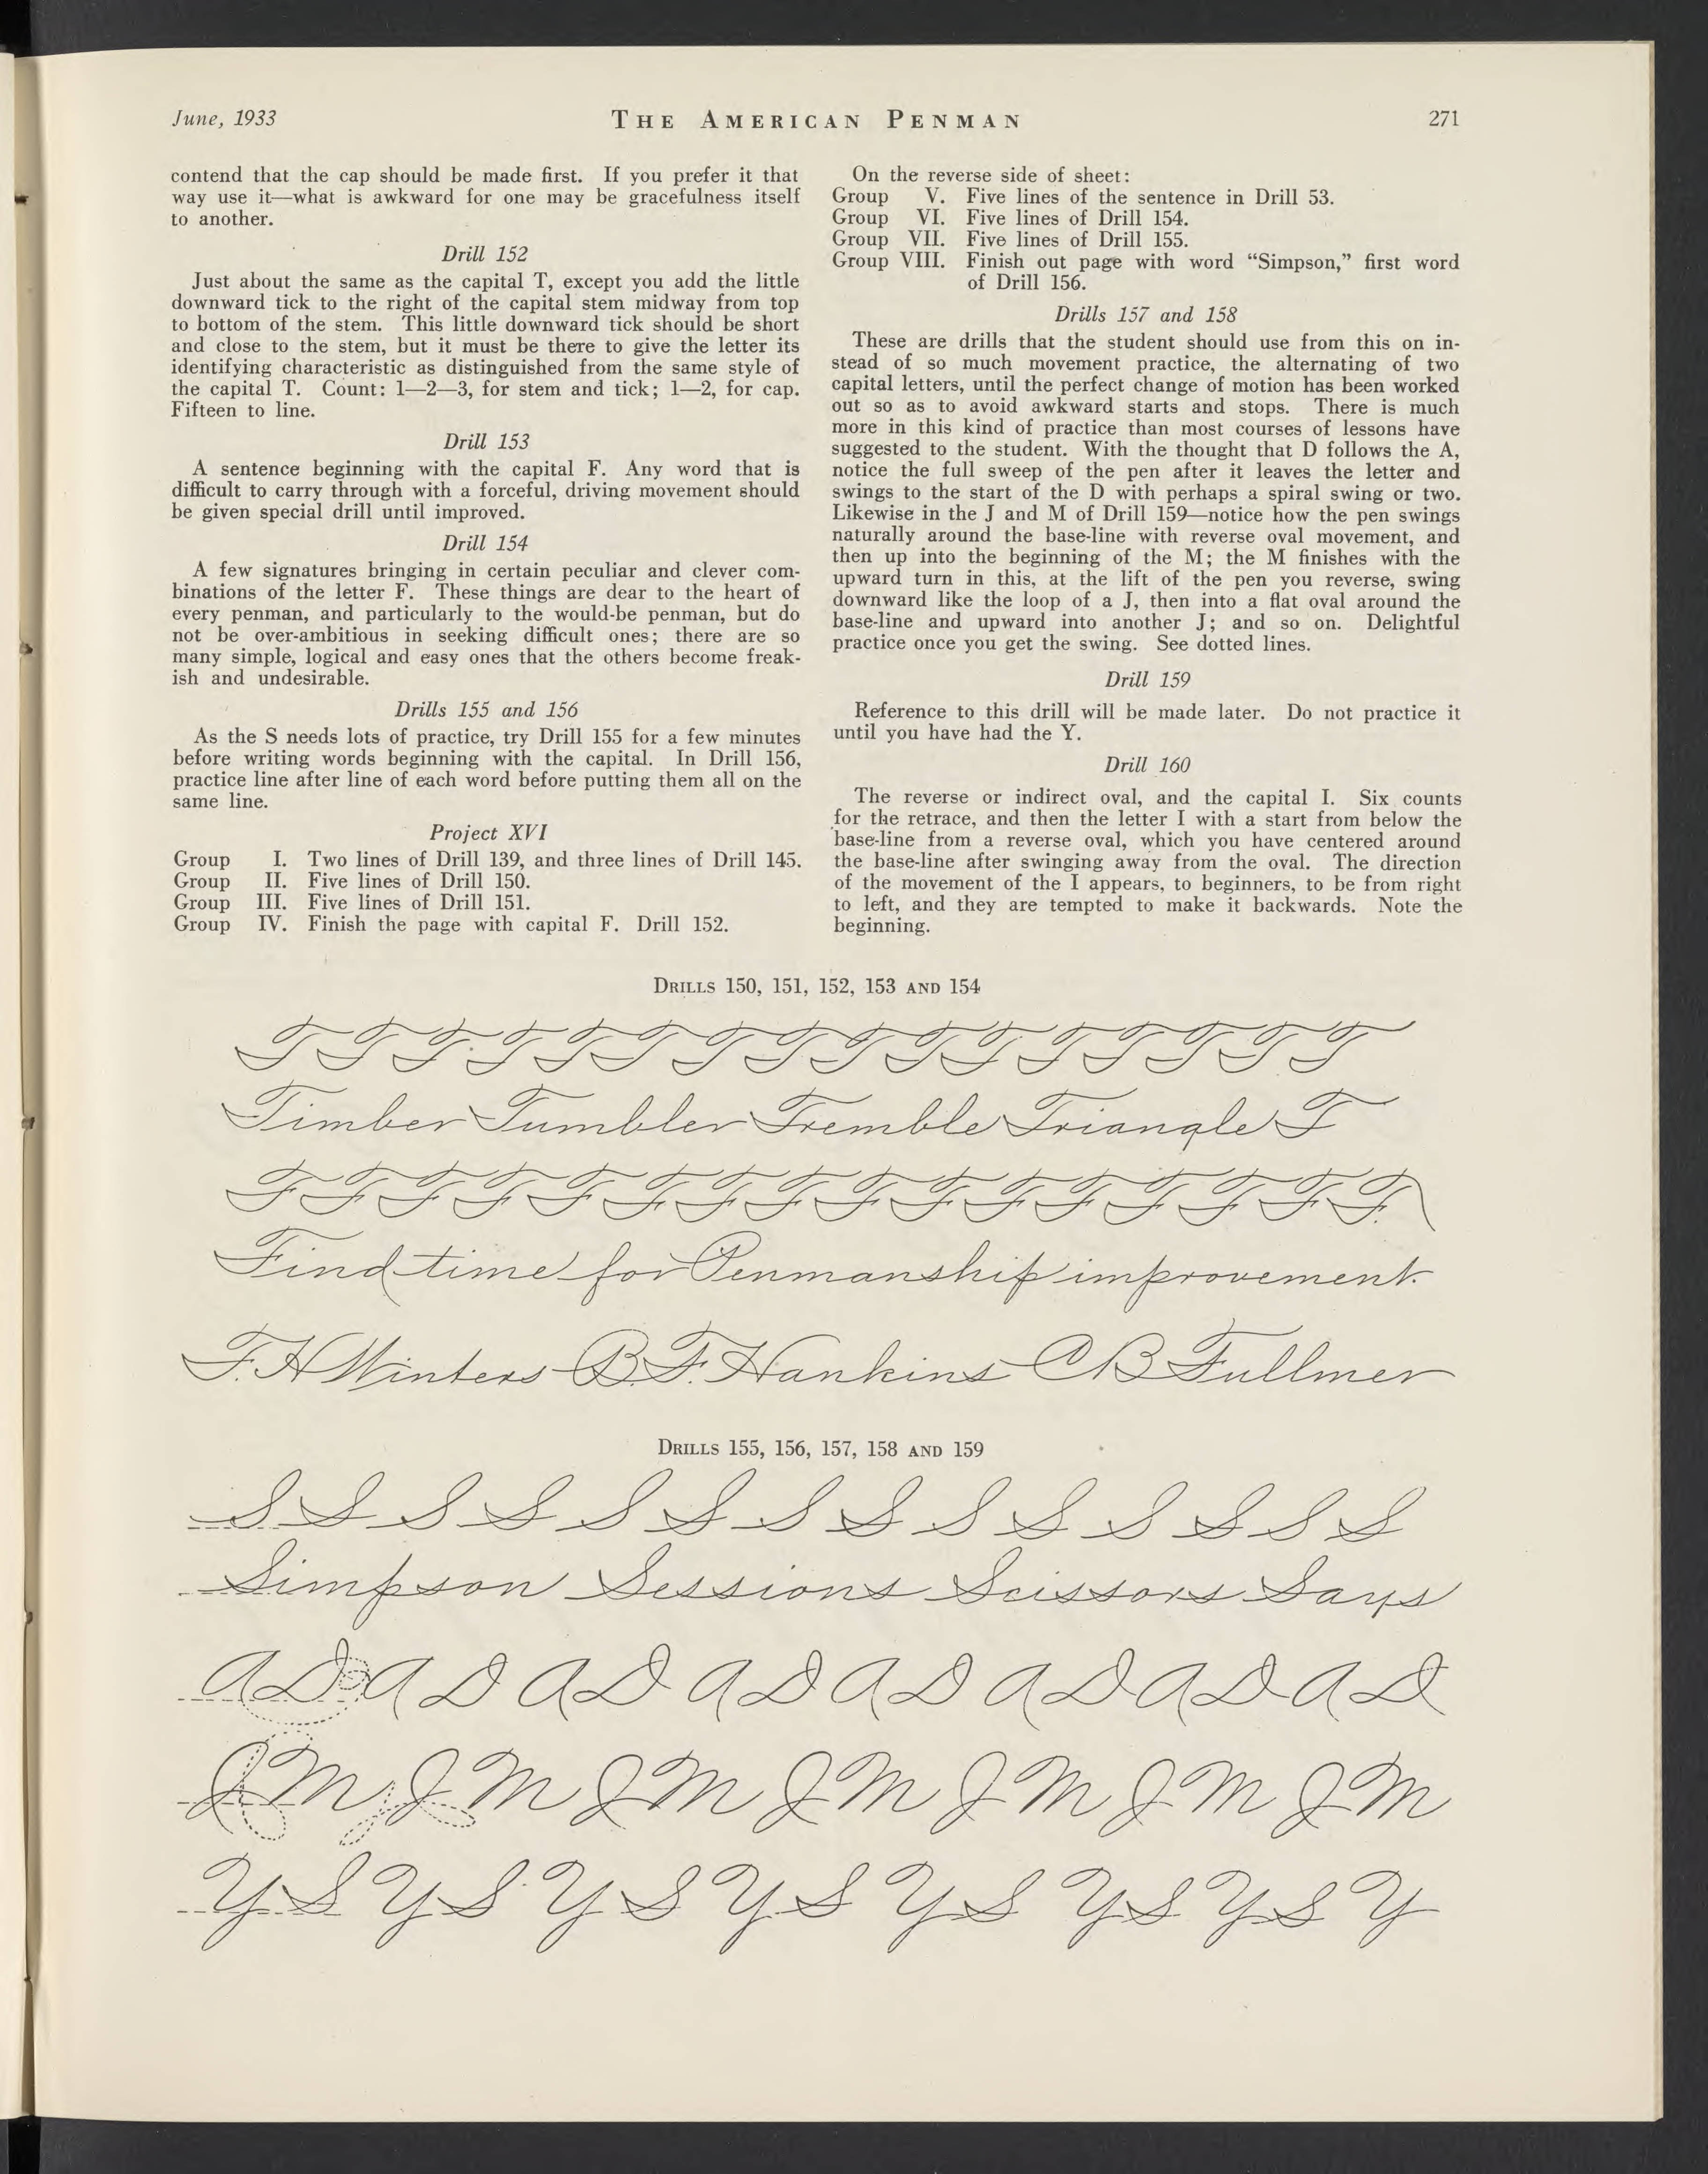 June, 1933
THE AMERICAN PENMAN
271
contend that the cap should be made first. If you prefer it that
way use it—what is awkward for one may be gracefulness itself
to another.
Drill 152
Just about the same as the capital T, except you add the little
downward tick to the right of the capital stem midway from top
to bottom of the stem. This little downward tick should be short
and close to the stem, but it must be there to give the letter its
identifying characteristic as distinguished from the same style of
the capital T. Count: 1—2—3, for stem and tick; 1—2, for cap.
Fifteen to line.
Drill 153
A sentence beginning with the capital F. Any word that is
difficult to carry through with a forceful, driving movement should
be given special drill until improved.
Drill 154
A few signatures bringing in certain peculiar and clever com-
binations of the letter F. These things are dear to the heart of
every penman, and particularly to the would-be penman, but do
not be over-ambitious in seeking difficult ones; there are so
many simple, logical and easy ones that the others become freak-
ish and undesirable.
Drills 155 and 156
As the S needs lots of practice, try Drill 155 for a few minutes
before writing words beginning with the capital. In Drill 156,
practice line after line of each word before putting them all on the
same line.
Project XVI
Group I. Two lines of Drill 139, and three lines of Drill 145.
Group II. Five lines of Drill 150.
Group III. Five lines of Drill 151.
Group IV. Finish the page with capital F. Drill 152.
On the reverse side of sheet:
Group V. Five lines of the sentence in Drill 53.
Group VI. Five lines of Drill 154.
Group VII. Five lines of Drill 155.
Group VIII. Finish out page with word “Simpson,” first word
of Drill 156.
Drills 157 and 158
These are drills that the student should use from this on in-
stead of so much movement practice, the alternating of two
capital letters, until the perfect change of motion has been worked
out so as to avoid awkward starts and stops. There is much
more in this kind of practice than most courses of lessons have
suggested to the student. With the thought that D follows the A,
notice the full sweep of the pen after it leaves the letter and
swings to the start of the D with perhaps a spiral swing or two.
Likewise in the J and M of Drill 159—notice how the pen swings
naturally around the base-line with reverse oval movement, and
then up into the beginning of the M; the M finishes with the
upward turn in this, at the lift of the pen you reverse, swing
downward like the loop of a J, then into a flat oval around the
base-line and upward into another J; and so on. Delightful
practice once you get the swing. See dotted lines.
Drill 159
Reference to this drill will be made later. Do not practice it
until you have had the Y.
Drill 160
The reverse or indirect oval, and the capital I. Six counts
for the retrace, and then the letter I with a start from below the
base-line from a reverse oval, which you have centered around
the base-line after swinging away from the oval. The direction
of the movement of the I appears, to beginners, to be from right
to left, and they are tempted to make it backwards. Note the
beginning.
DRILLS 150, 151, 152, 153 AND 154
T T T T T T T T T T T T T T T T
Timber Tumbler Tremble Triangle T
F F F F F F F F F F F F F F F F
Find time for Penmanship improvement.
F. H Winters B. F. Hankins C B Fullmer
DRILLS 155, 156, 157, 158 AND 159
S S S S S S S S S S S S S S
Simpson Sessions Scissors Says
A D A D A D A D A D A D A D A D
J M J M J M J M J M J M J M
Y S Y S Y S Y S Y S Y S Y S Y